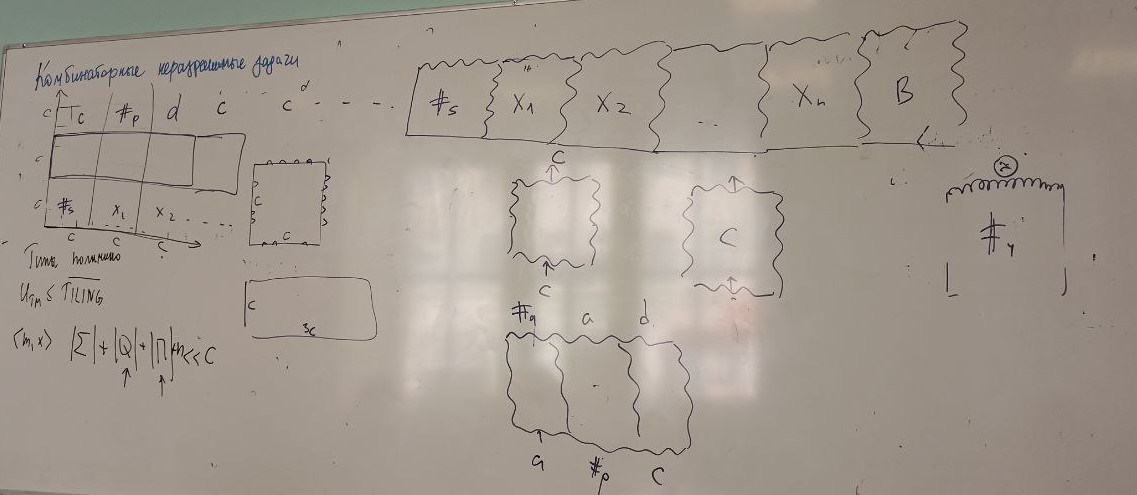 Комбинаторные неразрешимые задачи
c Tc #p d c c d - - - -
c
c #s x1 x2 - - - -
c c c
c
c
Типы полимино
U_TM ≤ TILING
⟨m,x⟩ |Σ|+|Q|+|Π|+n<<C
c
3c
#s X1 X2 ... Xn B
c
c
c
#q a d
a #p c
#y